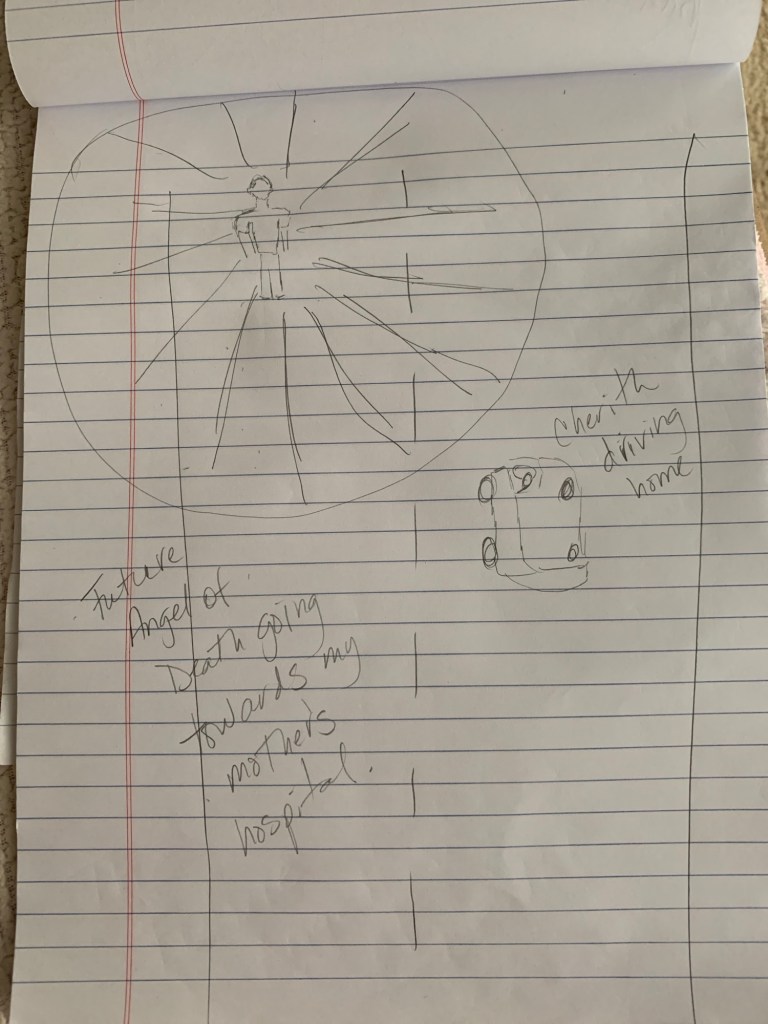 Cherith
driving
home
Future
Angel of
Death going
towards my
mother's
hospital.